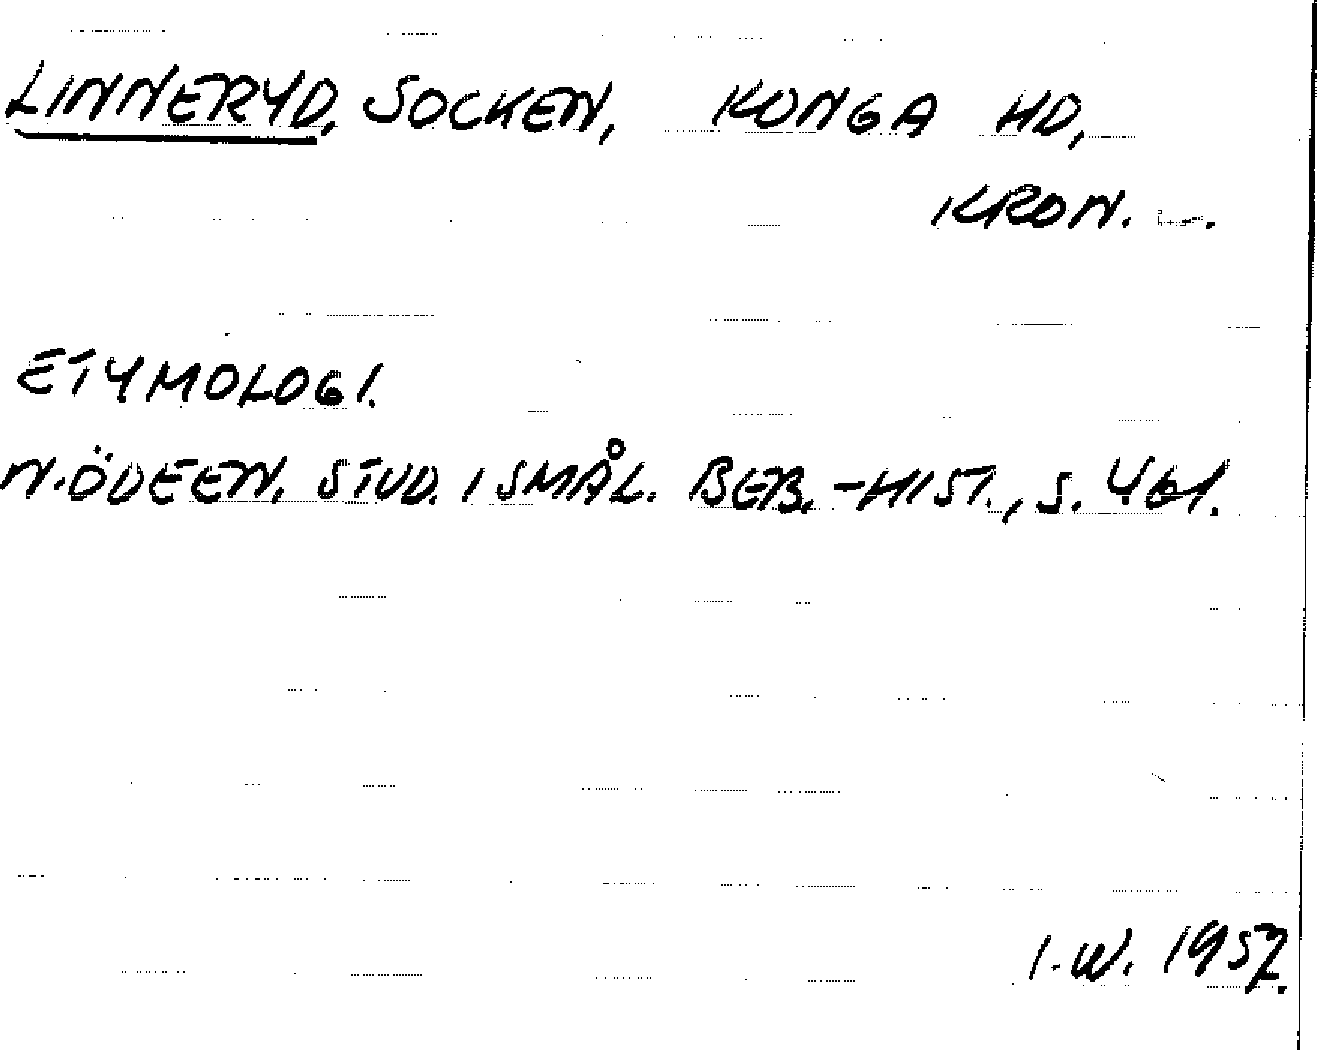 LINNERYD, SOCKEN, KONGA HD,
KRON.
ETYMOLOGI.
N. ÖDEEN, STUD. I SMÅL. BEB.-HIST., S. 461.
I. W. 1957.